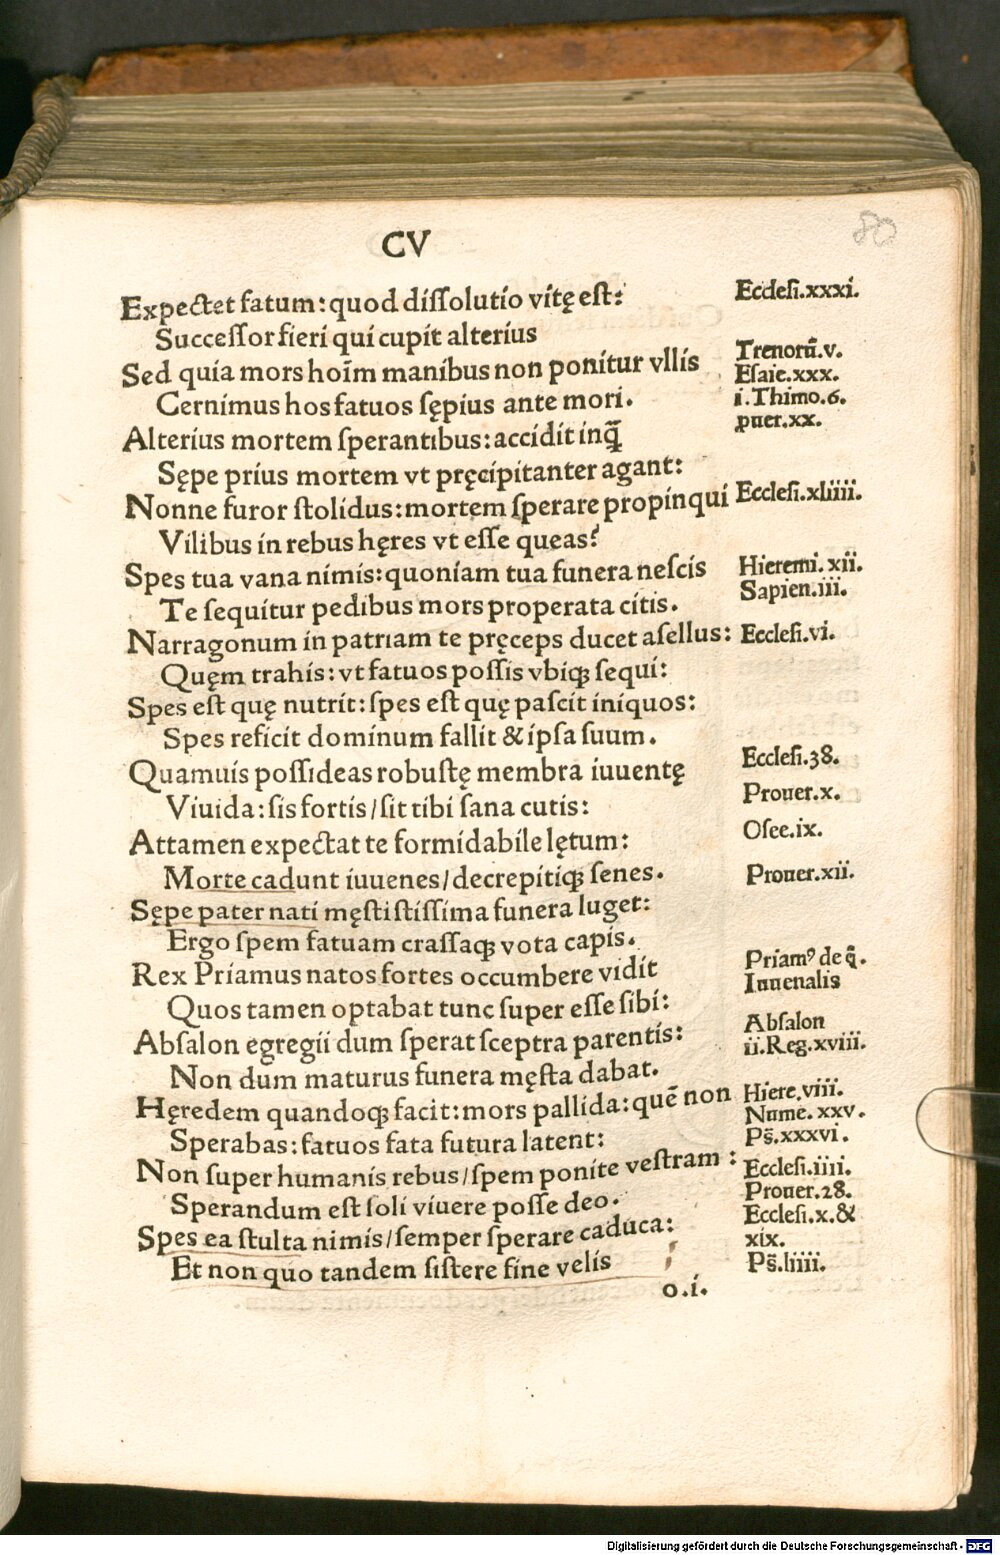 CV
80
Expectet fatum: quod dissolutio vitę est:
Ecclesi.xxxi.
Successor fieri qui cupit alterius
Sed quia mors hoīm manibus non ponitur vllis
Trenorū.v.
Esaie.xxx.
Cernimus hos fatuos sępius ante mori.
i.Thimo.6.
ꝓuer.xx.
Alterius mortem sperantibus: accidit inq̄
Sępe prius mortem vt pręcipitanter agant:
Nonne furor stolidus: mortem sperare propinqui
Ecclesi.xliiii.
Vilibus in rebus hęres vt esse queas?
Spes tua vana nimis: quoniam tua funera nescis
Hieremi.xii.
Sapien.iii.
Te sequitur pedibus mors properata citis.
Narragonum in patriam te pręceps ducet asellus:
Ecclesi.vi.
Quęm trahis: vt fatuos possis vbiqꝫ sequi:
Spes est quę nutrit: spes est quę pascit iniquos:
Spes reficit dominum fallit & ipsa suum.
Quamuis possideas robustę membra iuuentę
Ecclesi.38.
Viuida: sis fortis/ sit tibi sana cutis:
Prouer.x.
Attamen expectat te formidabile lętum:
Osee.ix.
Morte cadunt iuuenes/ decrepitiqꝫ senes.
Prouer.xii.
Sępe pater nati męstistissima funera luget:
Ergo spem fatuam crassaqꝫ vota capis.
Rex Priamus natos fortes occumbere vidit
Priamꝰ de q̄.
Iuuenalis
Quos tamen optabat tunc super esse sibi:
Absalon egregii dum sperat sceptra parentis:
Absalon
ii.Reg.xviii.
Non dum maturus funera męsta dabat.
Hęredem quandoqꝫ facit: mors pallida: quē non
Hiere.viii.
Nume.xxv.
Sperabas: fatuos fata futura latent:
Ps̄.xxxvi.
Non super humanis rebus/ spem ponite vestram:
Ecclesi.iiii.
Sperandum est soli viuere posse deo.
Prouer.28.
Ecclesi.x.&
Spes ea stulta nimis/ semper sperare caduca:
xix.
Et non quo tandem sistere fine velis
Ps̄.liiii.
o.i.
Digitalisierung gefördert durch die Deutsche Forschungsgemeinschaft - DFG